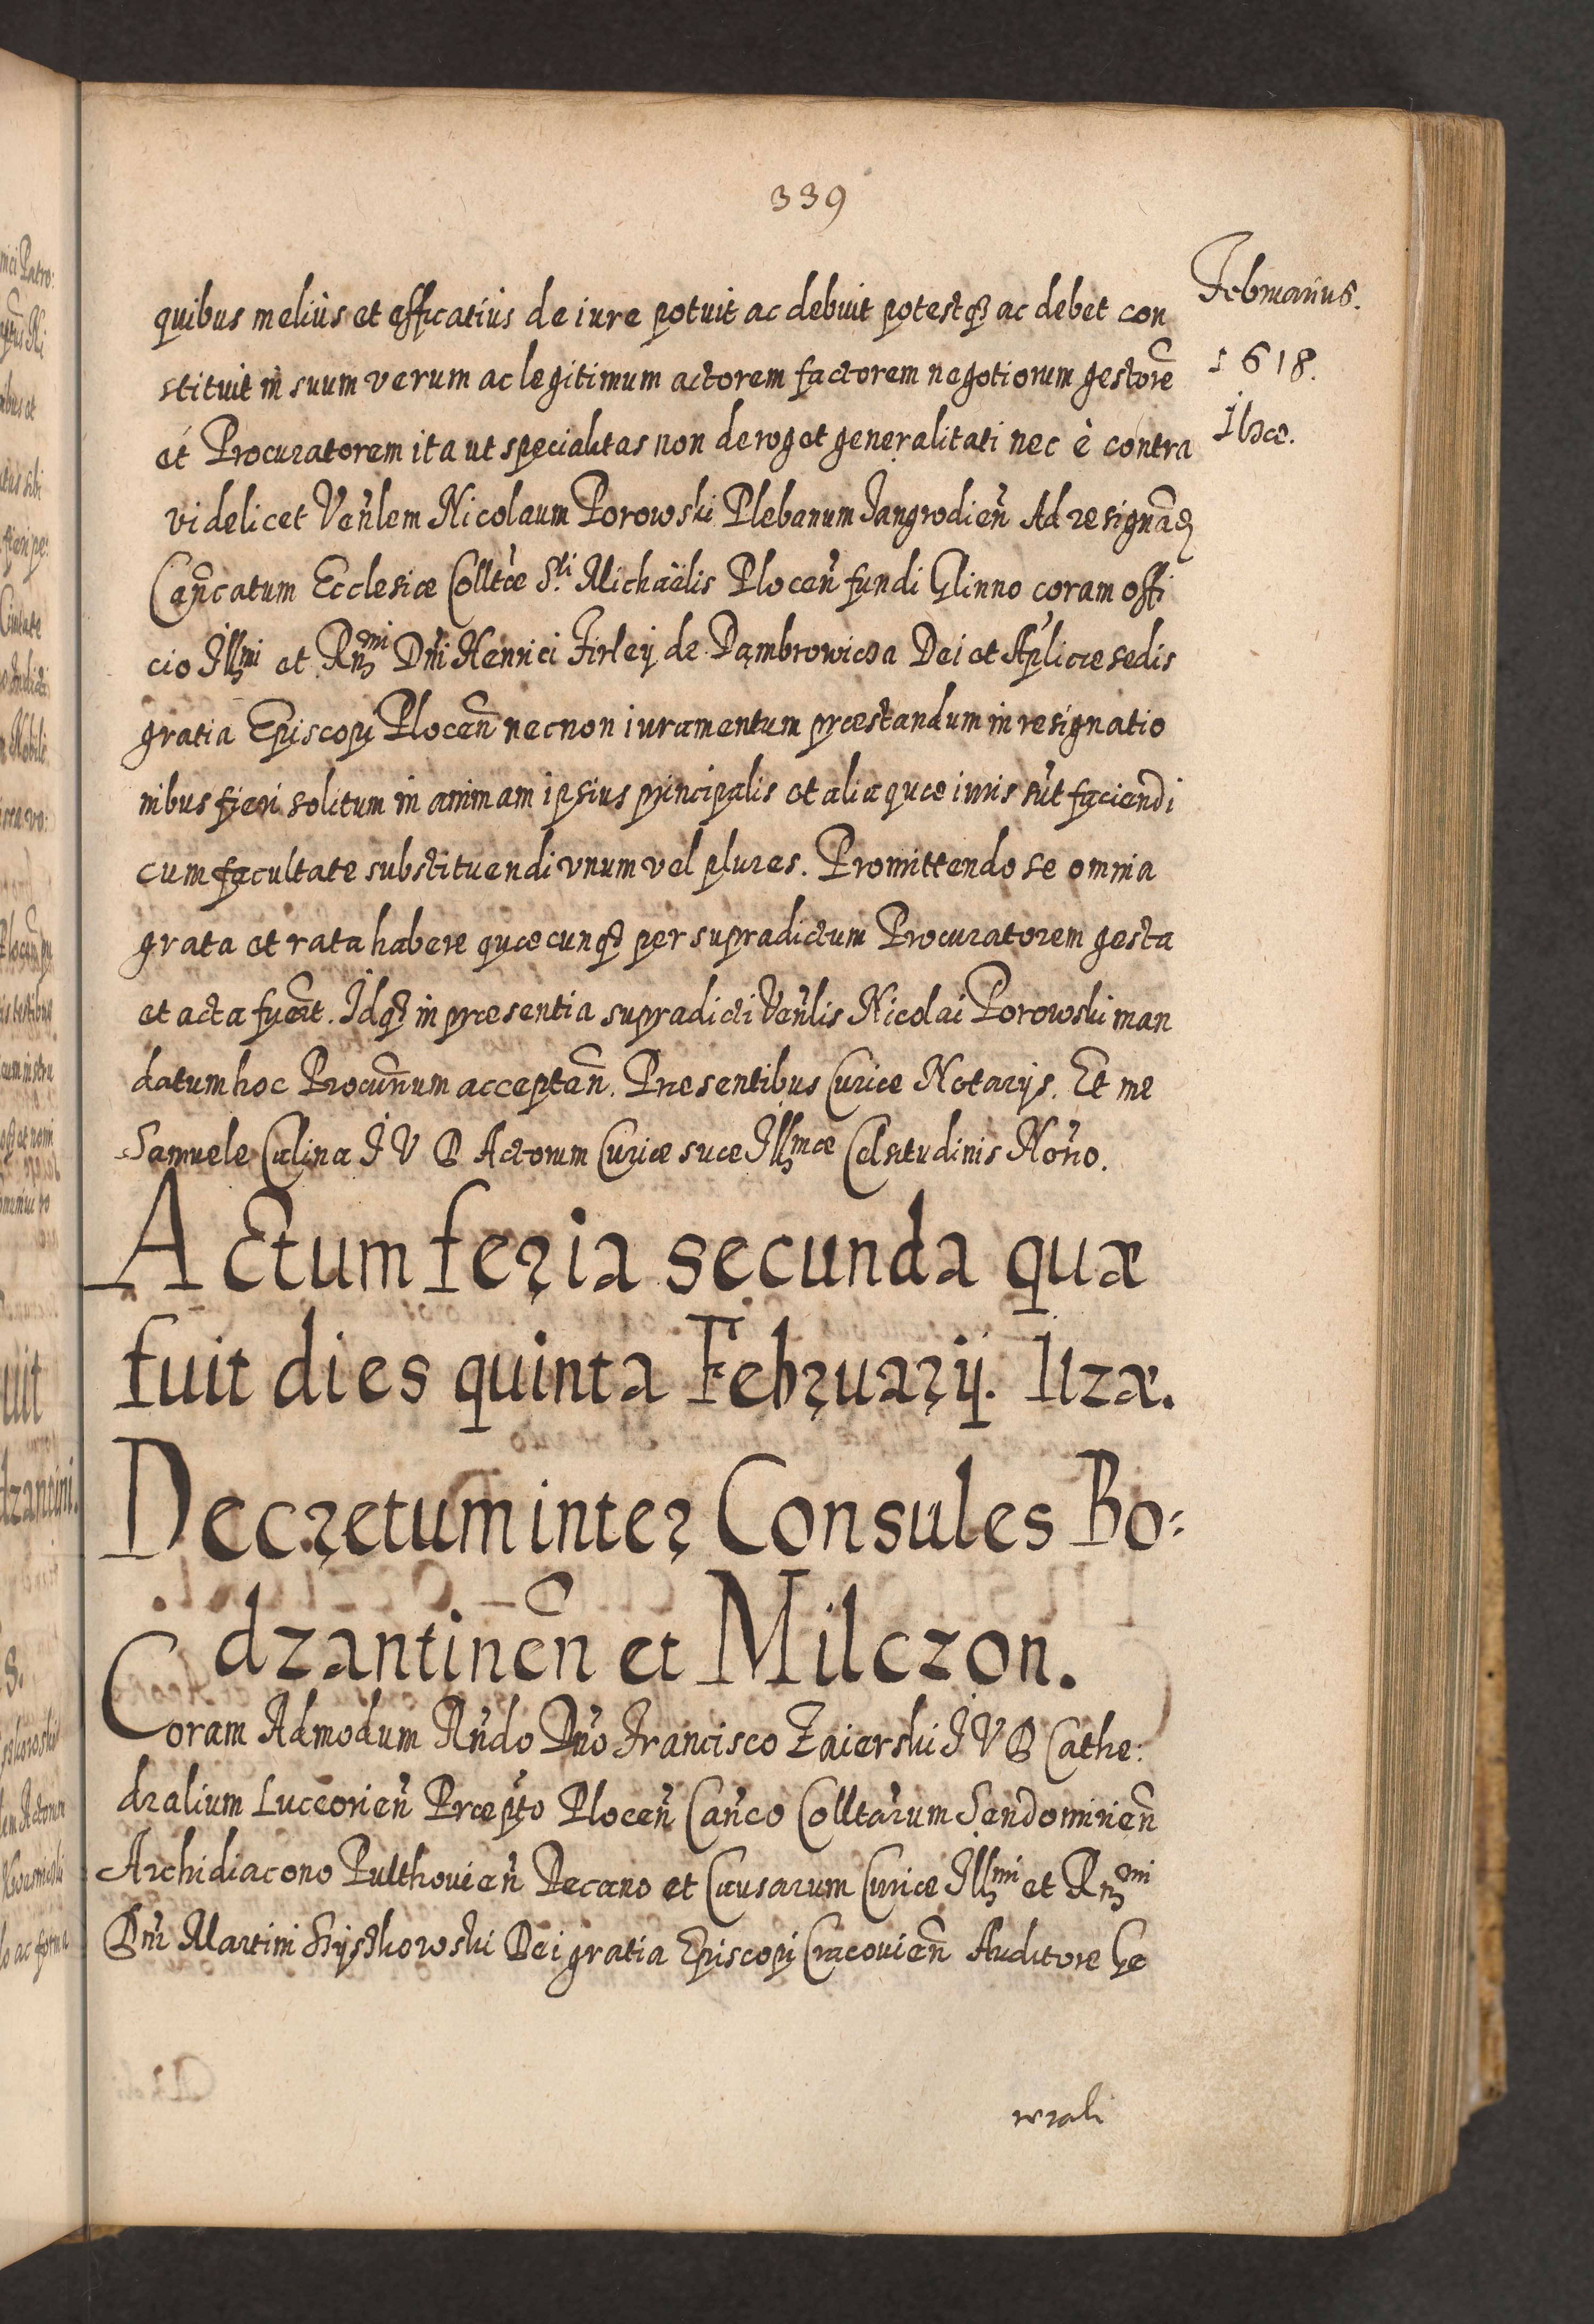 339
Februarius.
1618.
Ilzæ.
quibus meliùs et efficatiùs de iure potuit ac debuit potestq3 ac debet con
stituit in suum verum ac legitimum actorem factorem negotiorum gestorẽ
et Procuratorem ita ut specialitas non deroget generalitati nec è contra
videlicet Veñlem Nicolaum Porowski Plebanum Jangrodieñ Ad resignãd
Cañcatum Ecclesiæ Colltæ S.ti Michaëlis Ploceñ fundi Glinno coram offi
cio Illmi et Rñmi Dñi Henrici Firleÿ de Dąmbrowicza Dei et Aplicæ sedis
gratia Episcopi Ploceñ necnon iuramentum præstandum in resignatio
nibus fieri solitum in animam ipsius principalis et alia quæ iuris sũt faciendi
cum facultate substituendi vnum vel plures. Promittendo se omnia
grata et rata habere quæcunq3 per supradictum Procuratorem gesta
et acta fuerĩt. Idq3 in præsentia supradicti Veñlis Nicolai Porowski man
datum hoc Procuñum accepteñ. Præsentibus Curiæ Notarÿs. Et me
Samuele Calina I V D Actorum Curiæ suæ Illmæ Celsitudinis Norio.
Actum feria secunda quæ
fuit dies quinta Februarÿ. Ilzæ.
Decretum inter Consules Bo-
dzantineñ et Milczon.
Coram Admodum Rñdo Dño Francisco Zaierski I V D Cathe:
dralium Luceorieñ Præpto Ploceñ Cañco Colltarum Sendomirieñ
Archidiacono Pulthovieñ Decano et Causarum Curiæ Illmi et Rñmi
Dñi Martini Szÿszkowski Dei gratia Episcopi Cracovieñ Auditore Ge